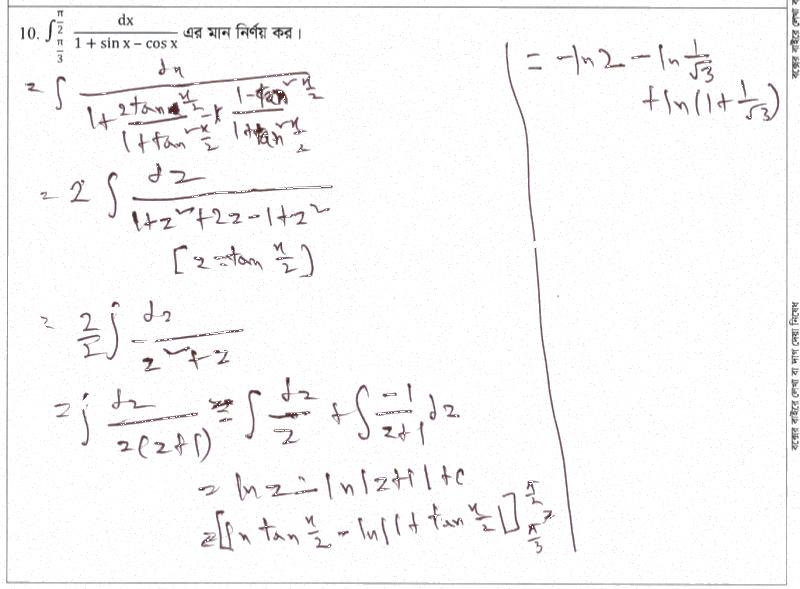 10. ∫_{π/3}^{π/2} dx / (1 + sin x – cos x) এর মান নির্ণয় কর।
= ∫ dx / (1 + (2tan x/2)/(1+tan² x/2) - (1-tan² x/2)/(1+tan² x/2))
= 2 ∫ dz / (1+z²+2z-1+z²)
[z = tan x/2]
= 2/2 ∫ dz / (z²+z)
= ∫ dz / (z(z+1)) = ∫ dz/z + ∫ -1/(z+1) dz
= ln z - ln|z+1| + c
= [ln tan x/2 - ln|1 + tan x/2|]_{π/3}^{π/2} =
= -ln 2 - ln 1/√3
+ ln(1 + 1/√3)
বক্সের বাইরে লেখা বা দাগ দেয়া নিষেধ
বক্সের বাইরে লেখা ব